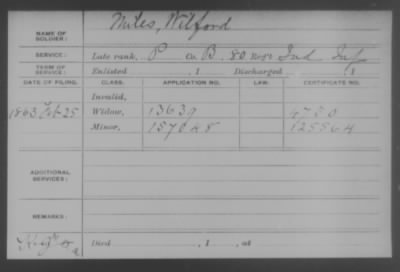 NAME OF SOLDIER: Miles, Wilford
SERVICE: Late rank, P Co. B, 80 Ind Inf
TERM OF SERVICE: Enlisted , 1 Discharged , 1
DATE OF FILING. CLASS. APPLICATION NO. LAW. CERTIFICATE NO.
Invalid,
1863 Feb 25 Widow, 13639
Minor, 157048 125564
ADDITIONAL SERVICES:
REMARKS:
Died , 1 , at